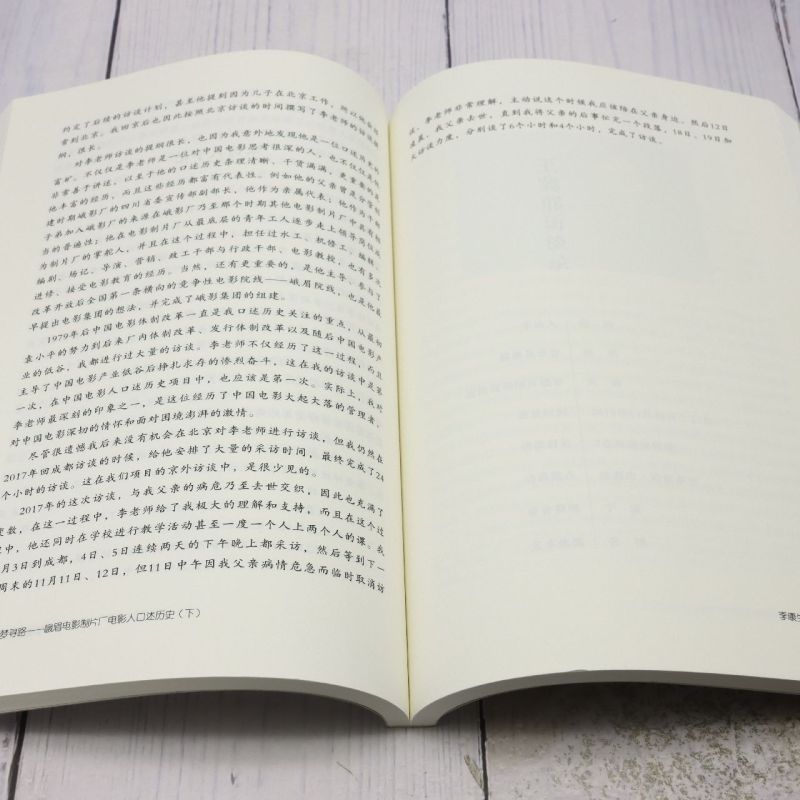 约定了后续的访谈计划，甚至他提到因为儿子在北京工作，所以他会经
常到北京。我回京后也因此按照北京访谈的时间撰写了李老师的访谈提
纲，很长。
对李老师访谈的提纲很长，也因为我意外地发现他是一位口述历史的
富矿。不仅仅是李老师是一位对中国电影思考很深的人，也不仅仅是他
非常善于讲述，以至于他的口述历史条理清晰、干货满满，更重要的是
他丰富的经历，而且这些经历都富有代表性。例如他的父亲曾是分管创
建时期峨影厂的四川省委宣传部副部长，他作为亲属代表；他作为干部
子弟加入峨影厂的来源在峨影厂乃至那个时期其他电影制片厂中具有相
当的普遍性；他在电影制片厂从最底层的青年工人逐步走上领导岗位成
为制片厂的掌舵人，并且在这个过程中，担任过水工、机修工、编辑、
编剧、场记、导演、营销、政工干部与行政干部、电影教授，也有多次
进修、接受电影教育的经历。当然，还有更重要的，是他主导、参与了
改革开放后全国第一条横向的竞争性电影院线——峨眉院线，也是他最
早提出电影集团的想法，并完成了峨影集团的组建。
1979年后中国电影体制改革一直是我口述历史关注的重点，从最初
袁小平的努力到后来厂内体制改革、发行体制改革以及随后中国电影产
业的低谷，我都进行过大量的访谈。李老师不仅经历了这一过程，而且
主导了中国电影产业低谷后挣扎求存的惨烈奋斗，这在我的访谈中是第
一次，在中国电影人口述历史项目中，也应该是第一次。实际上，我对
李老师最深刻的印象之一，是这位经历了中国电影大起大落的管理者，
对中国电影深切的情怀和面对困境澎湃的激情。
尽管很遗憾我后来没有机会在北京对李老师进行访谈，但我仍然在
2017年回成都访谈的时候，给他安排了大量的采访时间，最终完成了24
个小时的访谈。这在我们项目的京外访谈中，是很少见的。
2017年的这次访谈，与我父亲的病危乃至去世交织，因此也充满了
变数，在这一过程中，李老师给了我极大的理解和支持，而且在这个过
程中，他还同时在学校进行教学活动甚至一度一个人上两个人的课。我
月3日到成都，4日、5日连续两天的下午晚上都采访，然后等到下一
周末的11月11日、12日，但11日中午因我父亲病情危急而临时取消访
梦寻路——峨眉电影制片厂电影人口述历史（下）
谈，李老师非常理解，主动说这个时候我应该陪在父亲身边。然后12日
凌晨，我父亲去世，直到我将父亲的后事忙完一个段落，18日、19日加
大访谈力度，分别谈了6个小时和4个小时，完成了访谈。
李康生